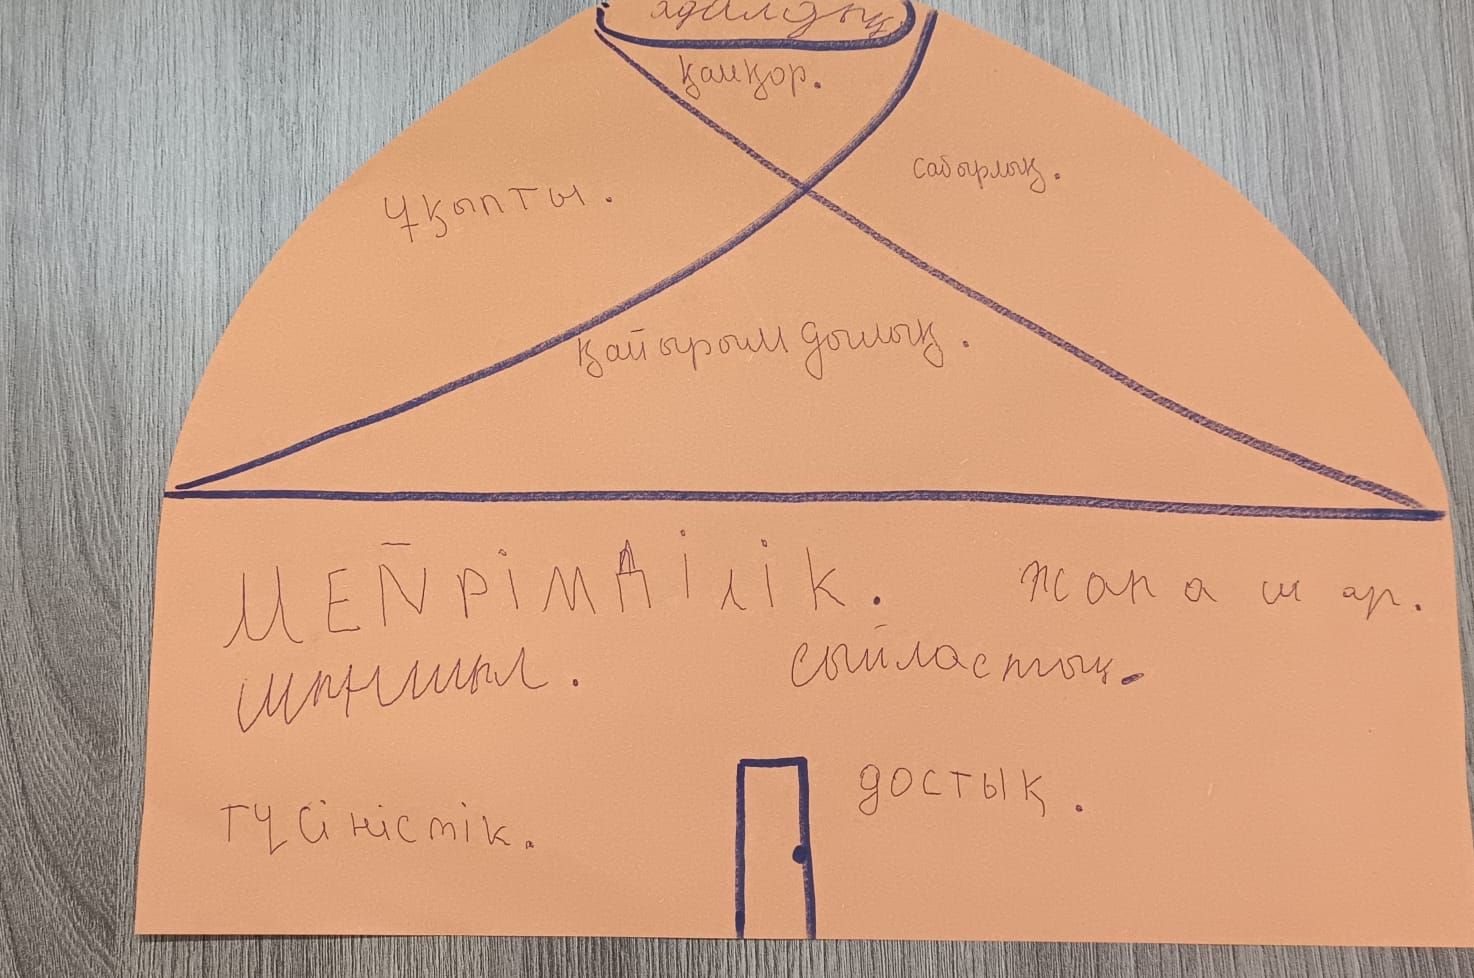 адалдық
қамқор.
сабырлық.
Ұқыпты.
қайырымдылық.
МЕЙРІМДІЛІК. жанашар.
шыншыл. сыйластық.
достық.
түсіністік.